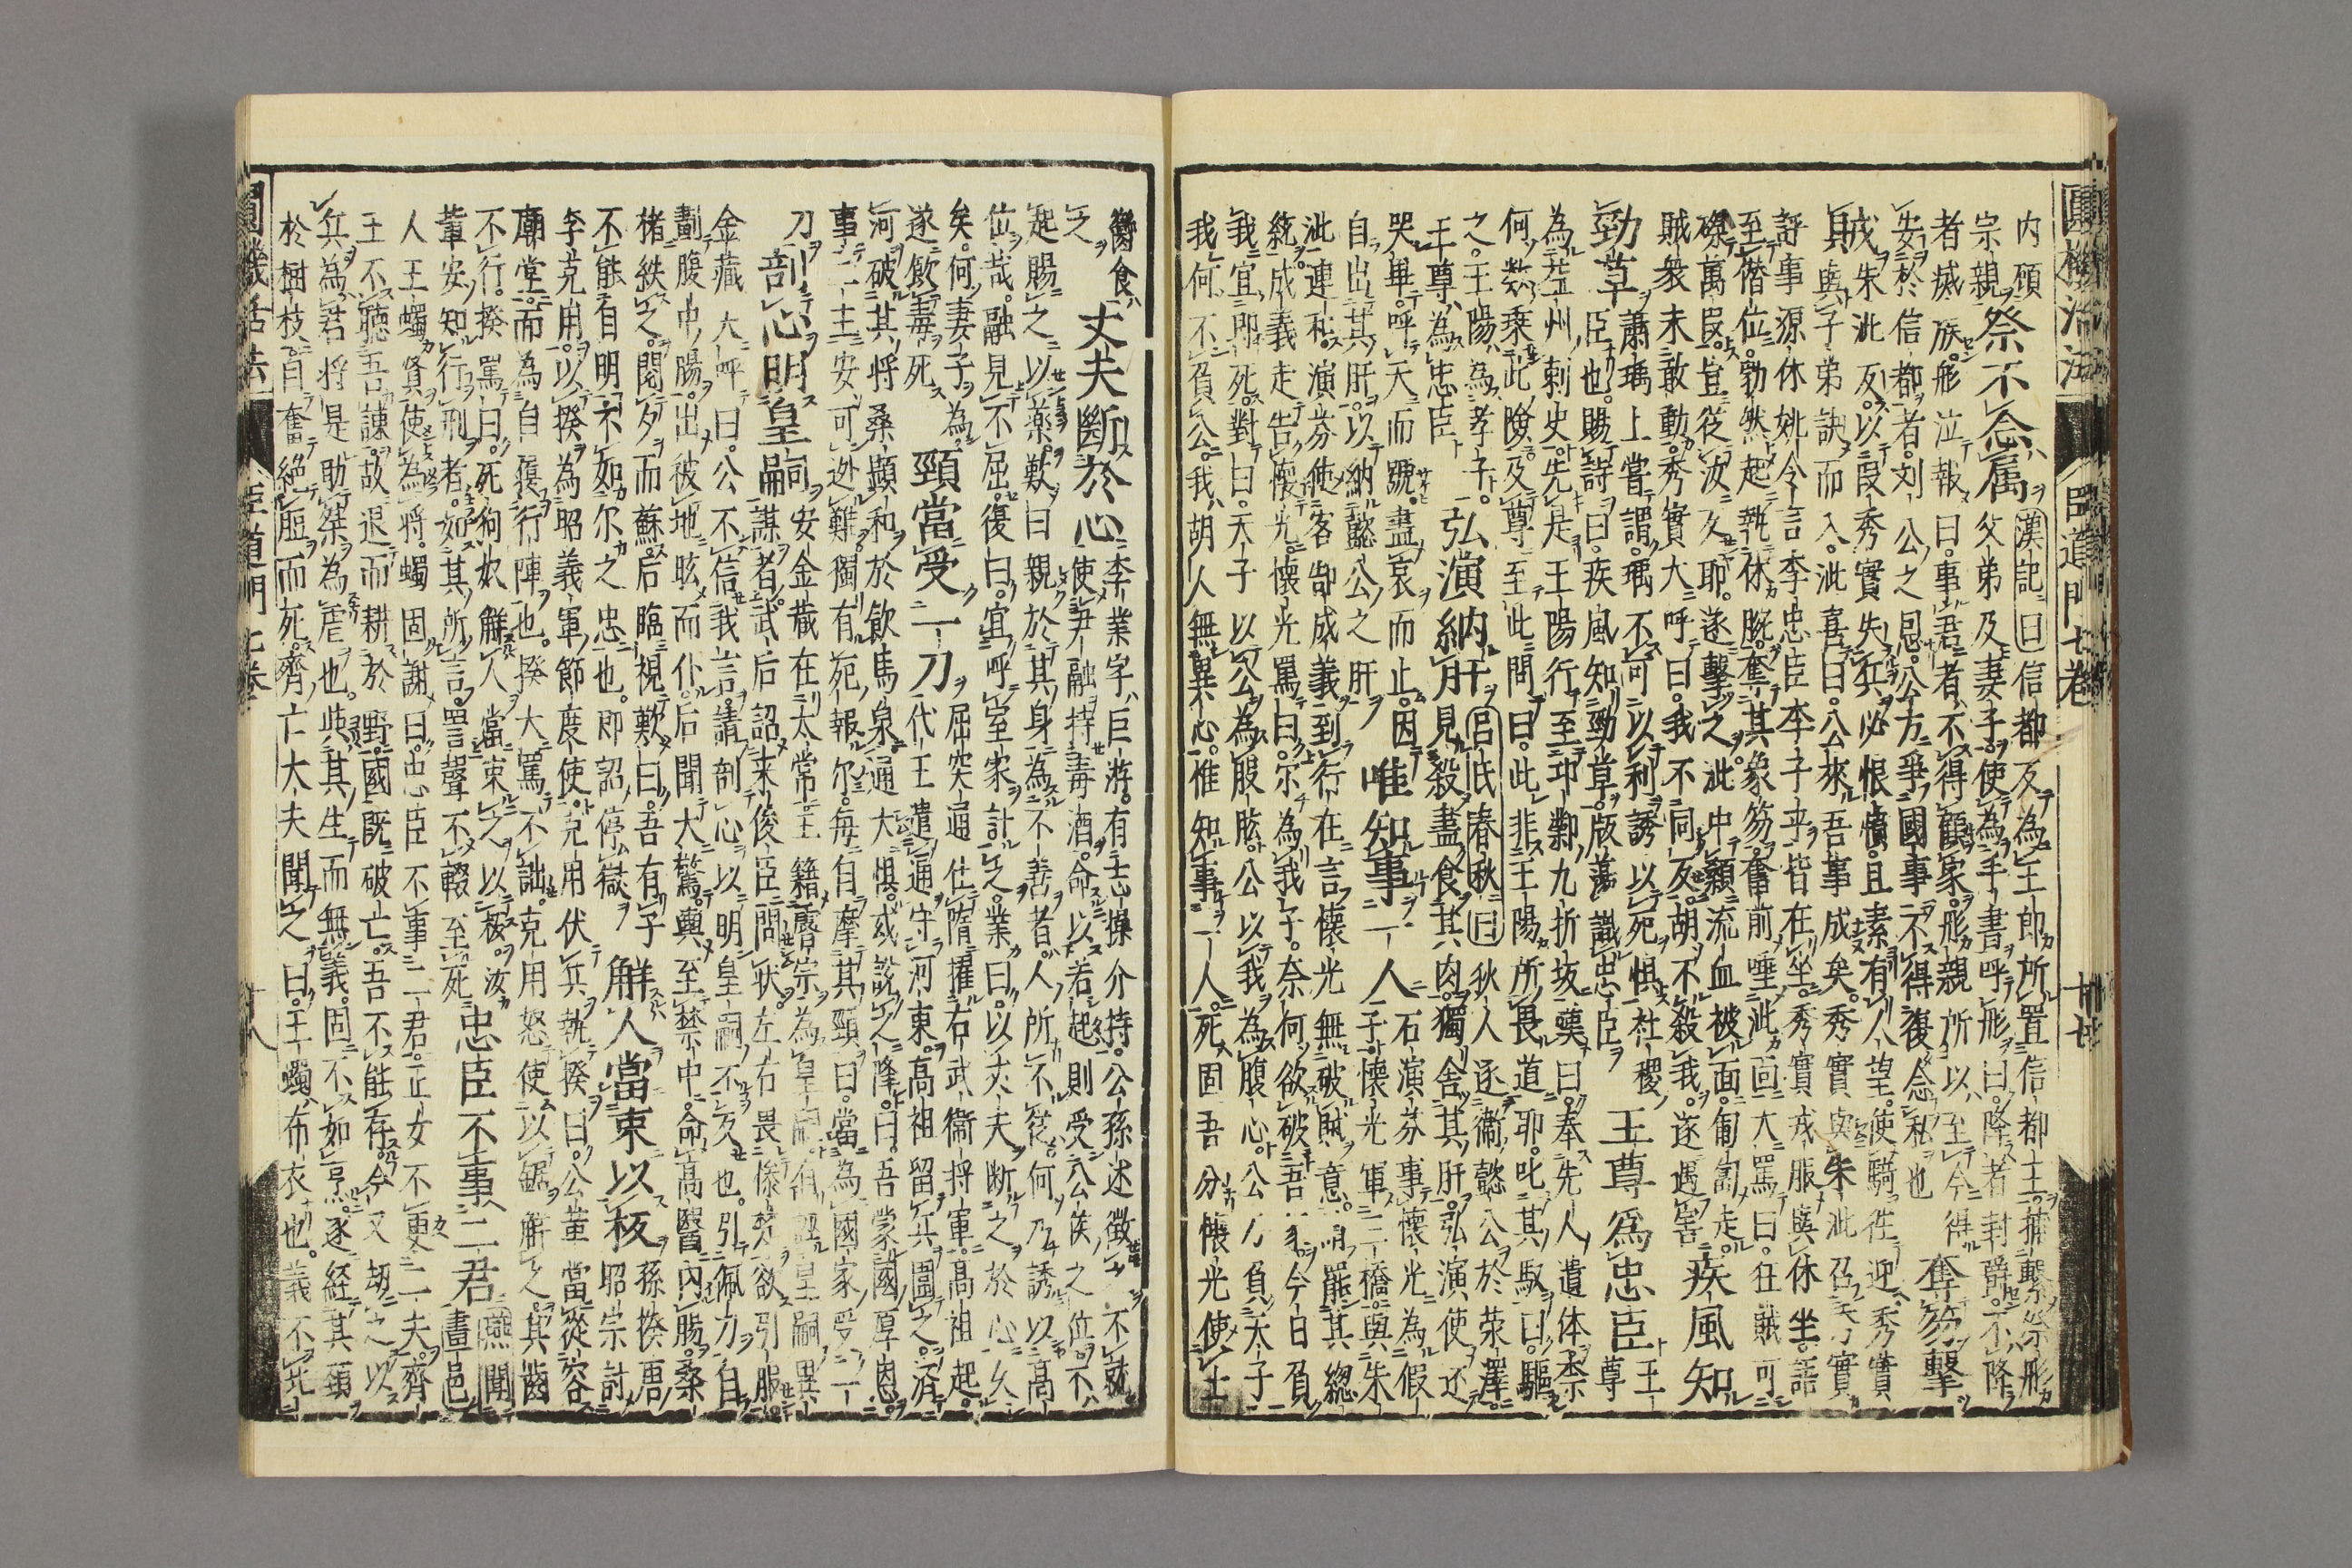 圓機活法 臣道門七卷
内顧
宗親祭不念属漢記曰信都反為王郎所置信都王捕繫祭肜
父弟及妻子使為手書呼肜曰降者封爵不降
者滅族肜泣報曰事君者不得顧家肜親所以至今得
安於信都者刘公之恩公方爭國事不得復念私也 奪笏擊
朱泚反以段秀實失兵必恨憤且素有人望使騎徃迎秀實
與子弟訣而入泚喜曰公來吾事成矣秀實與朱泚召秀實
計事源休姚令言李忠臣李子平皆在坐秀實戎服與休坐語
至僭位勃然起執休腕奪其象笏奮前唾泚面大罵曰狂賊可
磔萬段豈從汝反耶遂擊之泚中顙流血被面匍匐走
賊衆未敢動秀實大呼曰我不同反胡不殺我遂遇害 疾風知
勁草蕭瑀上嘗謂瑀不可以利誘以死惧社稷
臣也賜詩曰疾風知勁草版蕩識忠臣 王尊為忠臣王尊
為益州刺史先是王陽行至邛郲九折坂嘆曰奉先人遺体柰
何数乗此險及尊至此問曰此非王陽所畏道耶叱其馭曰驅
之王陽為孝子
王尊為忠臣 弘演納肝呂氏春秋曰狄人逐衞懿公於荥澤
見殺盡食其肉獨舍其肝弘演使还
哭畢呼天而號盡哀而止因
自出其肝以納懿公之肝 唯知事一人石演芬事懷光為假
子懷光軍三橋與朱
泚連和演芬使客郜成義到行在言懷光無破賊意請罷其總
統成義走告懷光懷光罵曰尔為我子奈何欲破吾家今日負
我宜即死對曰天子以公為股肱公以我為腹心公乃負天子
我何不負公我胡人無異心惟知事一人死固吾分懷光使士
臠食 丈夫斷於心李業字巨游有志操介持公孫述徵之不就
乏使尹融持毒酒命以若起則受公侯之位不
起賜之以藥歎曰親於其身為不善者人所不從何乃誘以高
位哉融見不屈復曰宜呼室家計之業曰以丈夫断之於心久
矣何妻子為
遂飲毒死 頸當受一刀屈突通仕隋擢右武衞将軍高祖起
代王遣通守河東高祖留兵圍之濟
河破其将桑顯和於飲馬泉通大惧或說之降曰吾蒙國厚恩
事二主安可迯難獨有死報尔每自摩其頸曰當為國家受一
刀 剖心明皇嗣安金藏在太常工籍睿宗為皇嗣有誣皇嗣異
謀者武后詔来俊臣問状左右畏慘楚欲引服
金藏大呼曰公不信我言請剖心以明皇嗣不反也引佩刀自
劃腹中腸出被地眩而仆后聞大驚輿至禁中命高醫内腸桑
楮紩之閱夕而蘇后臨視歎曰吾有子
不能自明不如尔之忠也即詔停獄 解人當東以板孫揆唐
昭宗討
李克用以揆為昭義軍節度使克用伏兵執揆曰公輩當從容
廟堂而為自履行陣也揆大罵不詘克用怒使以鋸解之其齒
不行揆罵曰死狗奴解人當束之以板汝
輩安知行刑者如其所言詈聲不輟至死 忠臣不事二君燕聞畫邑
人王蠋賢使為将蠋固謝曰忠臣不事二君正女不更二夫齊
王不聴吾諫故退而耕於野國既破亡吾不能存今又刼之以
兵為君将是助桀為虐也其生而無義固不如烹遂経其頸
於樹枝自奮絶脰而死齊亡大夫聞之曰王蠋布衣也義不北
圓機活法 臣道門七卷 廿八